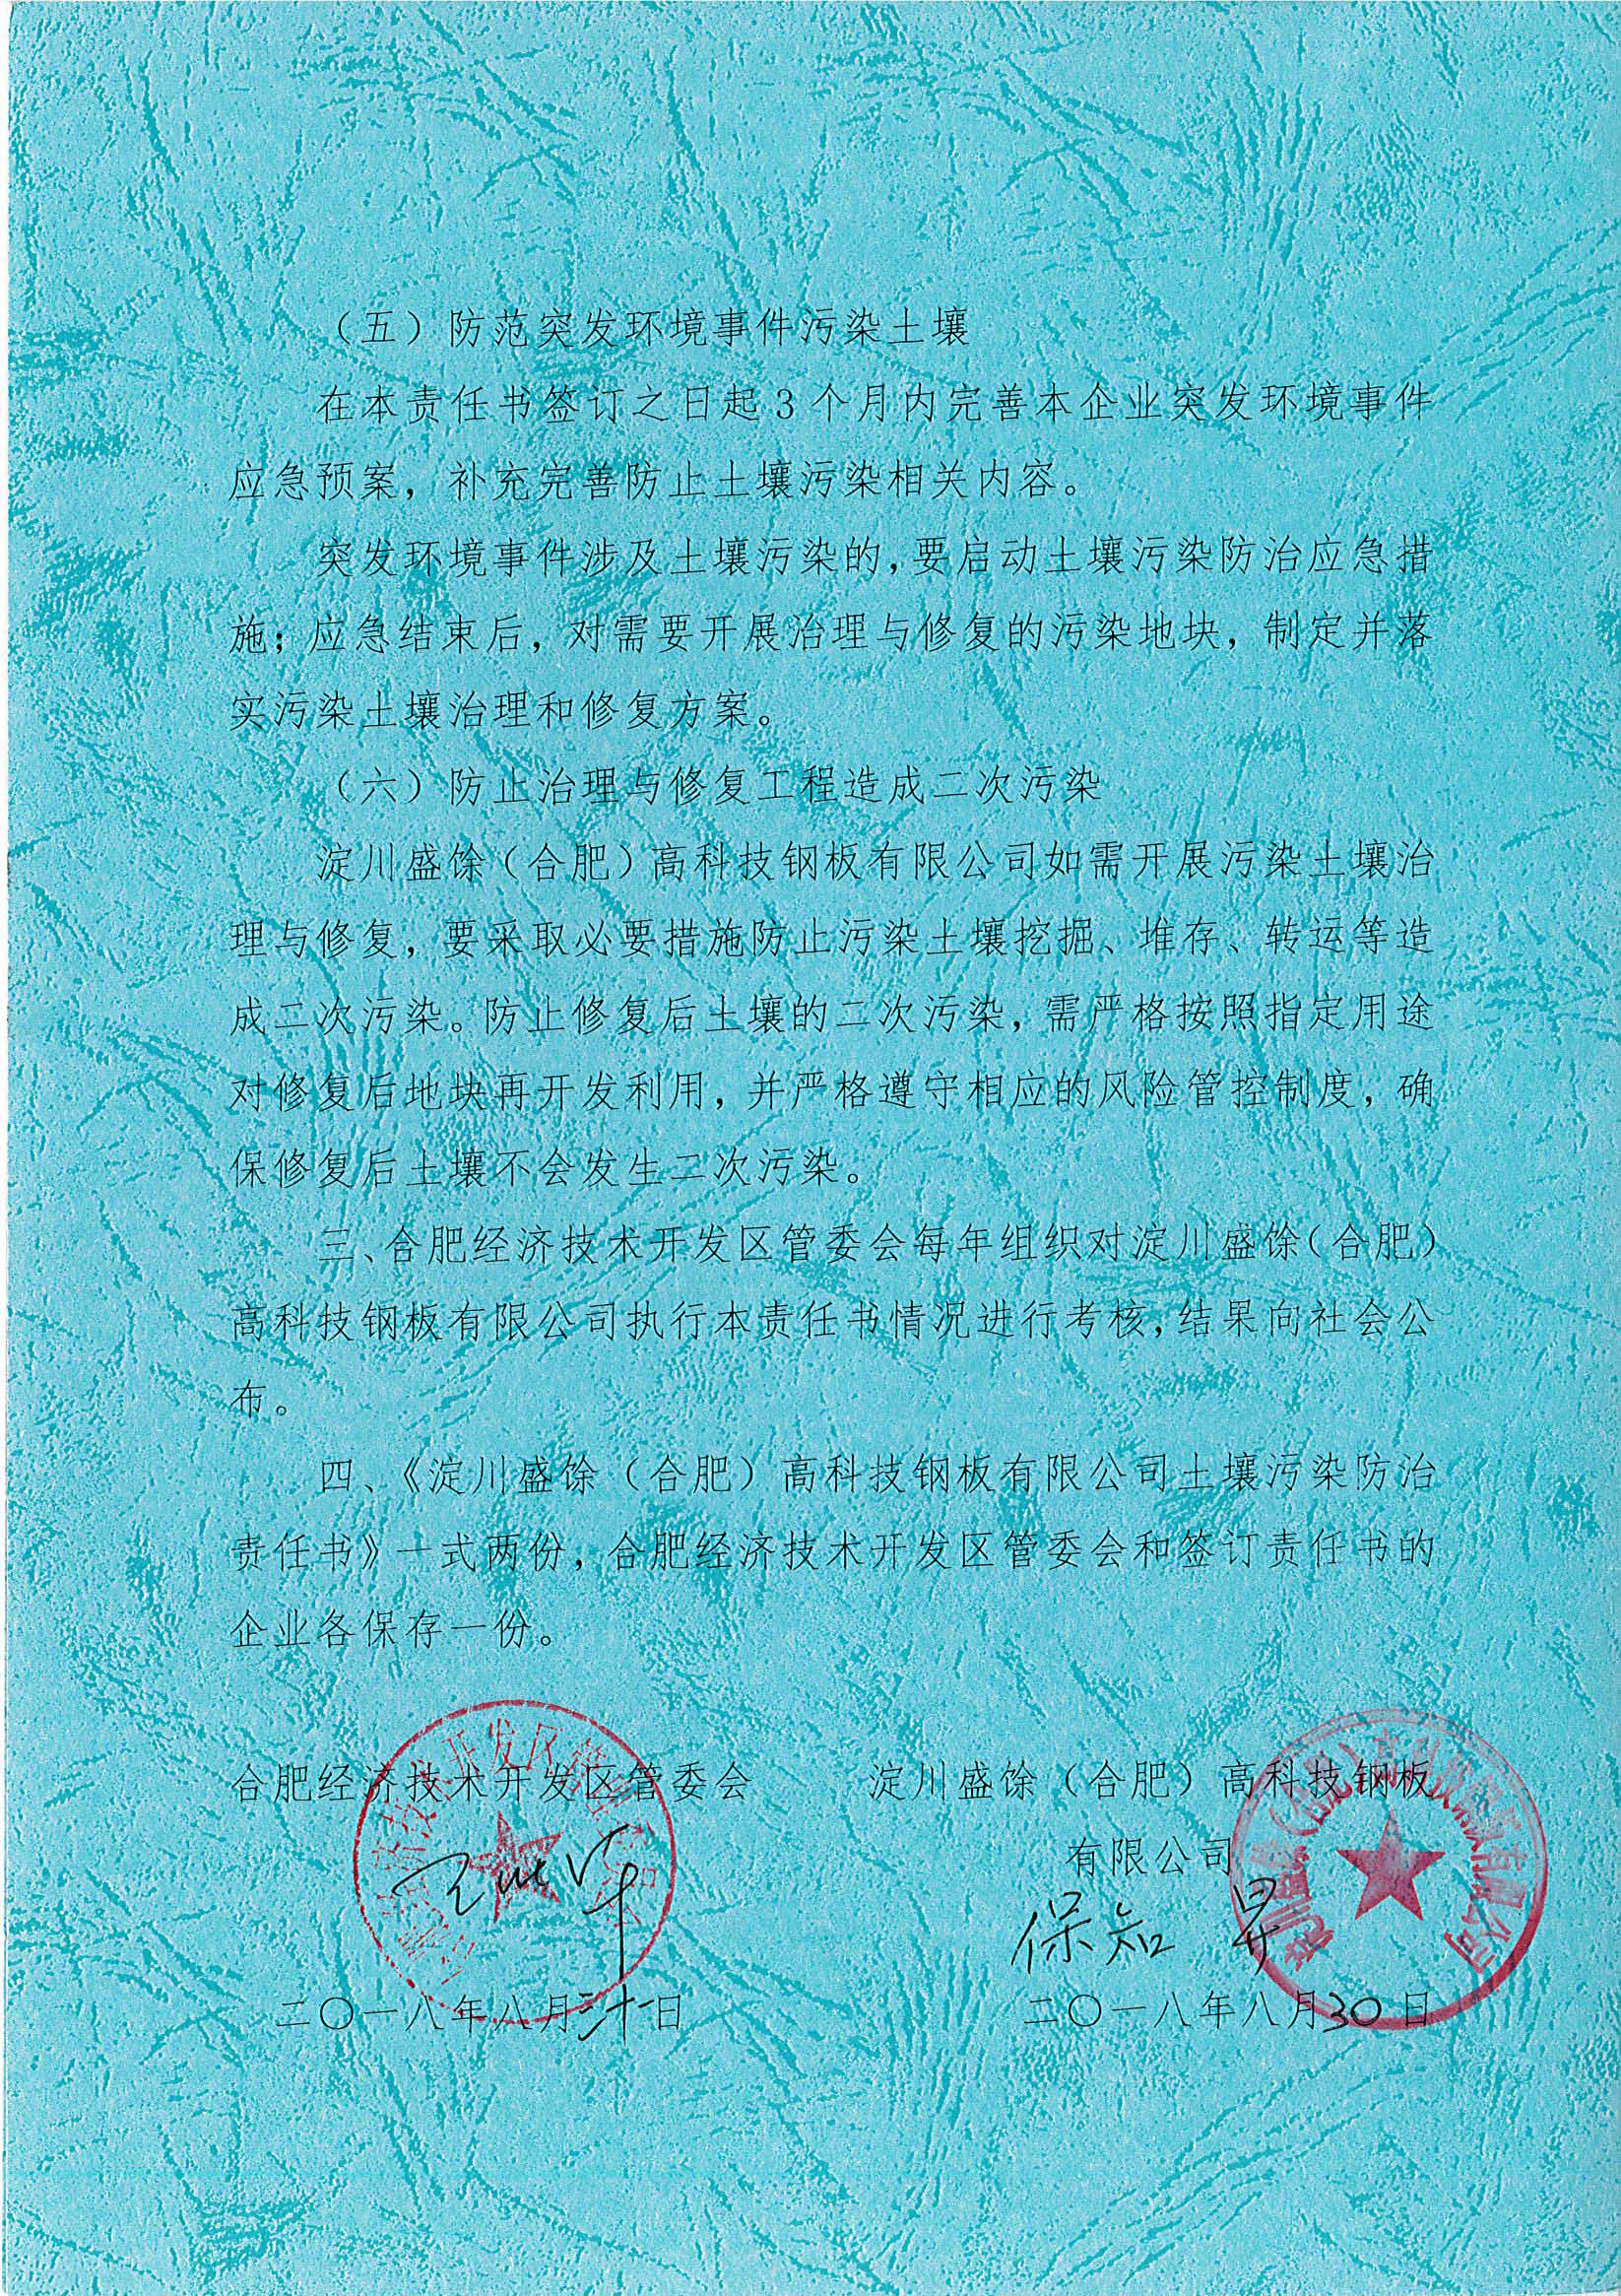 （五）防范突发环境事件污染土壤
在本责任书签订之日起3个月内完善本企业突发环境事件
应急预案，补充完善防止土壤污染相关内容。
突发环境事件涉及土壤污染的，要启动土壤污染防治应急措
施；应急结束后，对需要开展治理与修复的污染地块，制定并落
实污染土壤治理和修复方案。
（六）防止治理与修复工程造成二次污染
淀川盛馀（合肥）高科技钢板有限公司如需开展污染土壤治
理与修复，要采取必要措施防止污染土壤挖掘、堆存、转运等造
成二次污染。防止修复后土壤的二次污染，需严格按照指定用途
对修复后地块再开发利用，并严格遵守相应的风险管控制度，确
保修复后土壤不会发生二次污染。
三、合肥经济技术开发区管委会每年组织对淀川盛馀（合肥）
高科技钢板有限公司执行本责任书情况进行考核，结果向社会公
布。
四、《淀川盛馀（合肥）高科技钢板有限公司土壤污染防治
责任书》一式两份，合肥经济技术开发区管委会和签订责任书的
企业各保存一份。
合肥经济技术开发区管委会 淀川盛馀（合肥）高科技钢板
有限公司
保知昇
二〇一八年八月三十一日 二〇一八年八月30日